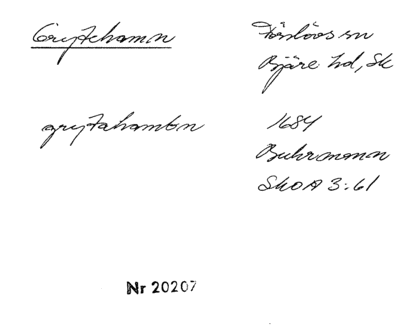 Grytehamn
Förslövs sn
Bjäre hd, Sk
grytahambn
1684
Buhrmann
SkOA 3:61
Nr 20207